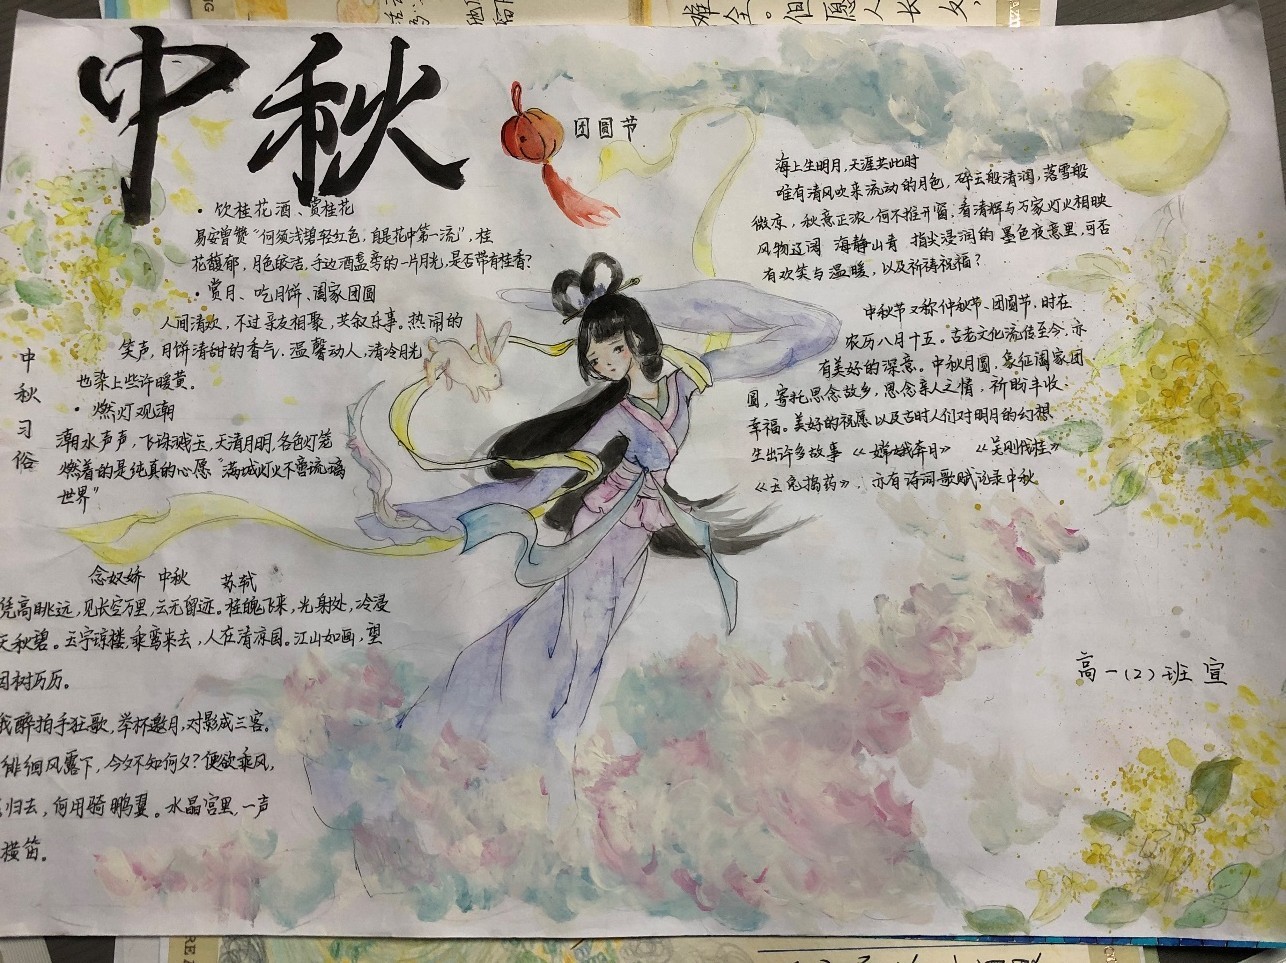 中秋
团圆节
中秋习俗
·饮桂花酒、赏桂花
易安曾赞“何须浅碧轻红色,自是花中第一流”,桂
花馥郁,月色皎洁,手边酒盏弯的一片月光,是否带有桂香?
·赏月、吃月饼、阖家团圆
人间清欢,不过亲友相聚,共叙乐事。热闹的
笑声,月饼清甜的香气,温馨动人,清冷月光
也染上些许暖黄。
·燃灯观潮
潮水声声,飞珠溅玉,天清月明,各色灯笼
燃着的是纯真的心愿“满城灯火不啻琉璃
世界”
念奴娇 中秋 苏轼
凭高眺远,见长空万里,云无留迹。桂魄飞来,光射处,冷浸
天秋碧。玉宇琼楼,乘鸾来去,人在清凉国。江山如画,望
烟树历历。
我醉拍手狂歌,举杯邀月,对影成三客。
徘徊风露下,今夕不知何夕?便欲乘风,
归去,何用骑鹏翼。水晶宫里,一声
横笛。
海上生明月,天涯共此时
唯有清风吹来流动的月色,碎云般清润,落雪般
微凉,秋意正浓,何不推开窗,看清辉与万家灯火相映
风物辽阔 海静山青 指尖浸润的墨色夜意里,可否
有欢笑与温暖,以及祈祷祝福?
中秋节又称仲秋节、团圆节,时在
农历八月十五。古老文化流传至今,亦
有美好的深意。中秋月圆,象征阖家团
圆,寄托思念故乡,思念亲人之情,祈盼丰收、
幸福。美好的祝愿以及古时人们对明月的幻想
生出许多故事《嫦娥奔月》 《吴刚伐桂》
《玉兔捣药》 亦有诗词歌赋记录中秋
高一(2)班 宣